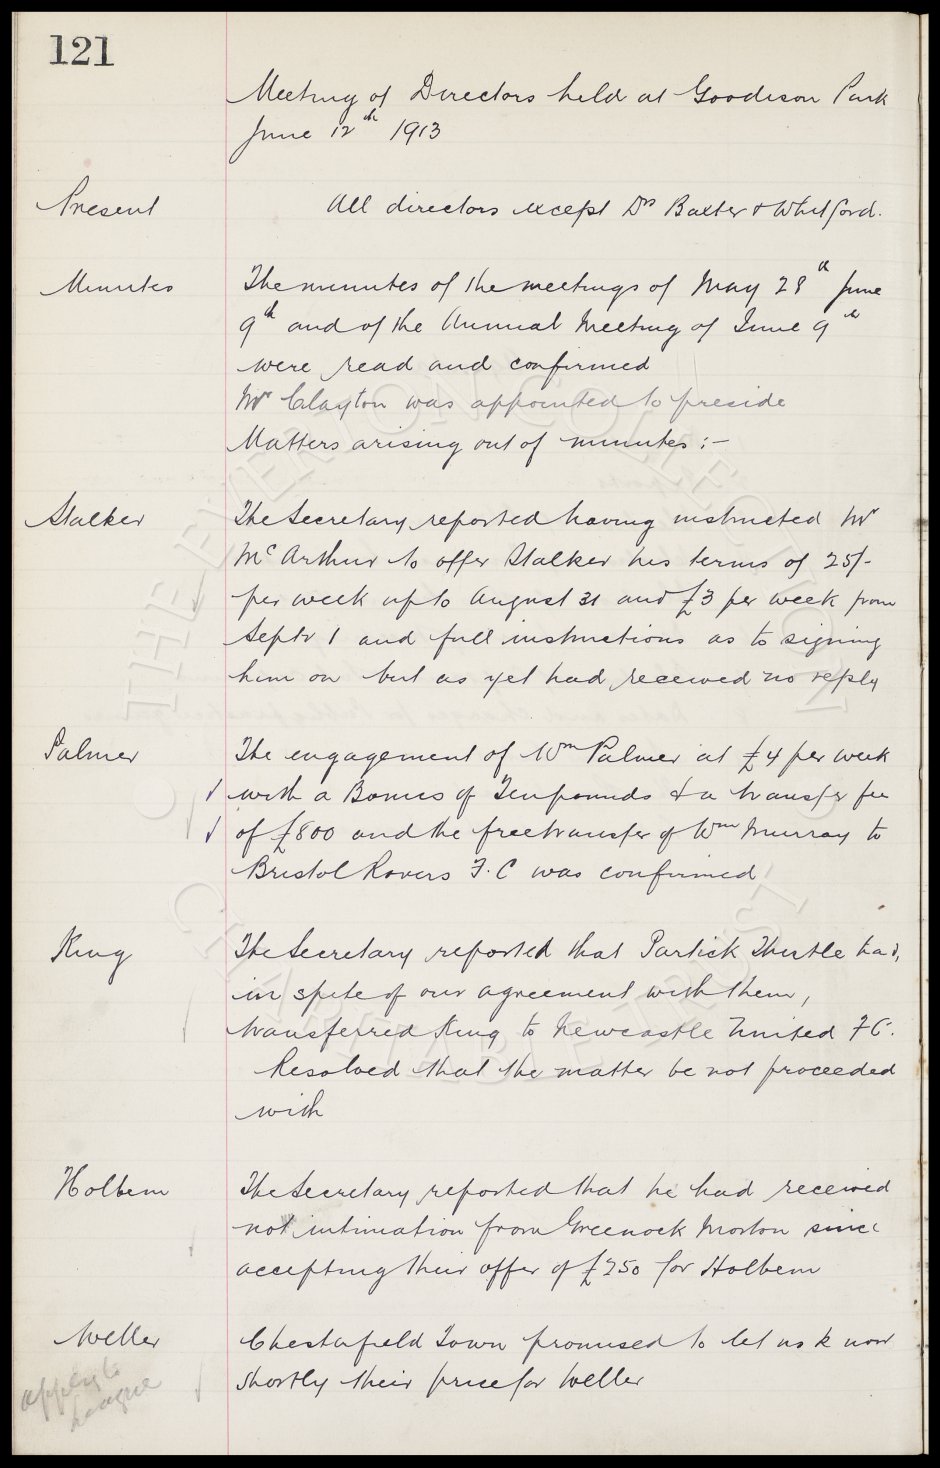 121
Meeting of Directors held at Goodison Park
June 12th 1913
Present
All directors except Drs Baxter & Whitford.
Minutes
The minutes of the meetings of May 28th June
9th and of the Annual Meeting of June 9th
were read and confirmed
Mr Clayton was appointed to preside
Matters arising out of minutes :-
Stalker
The Secretary reported having instructed Mr
McArthur to offer Stalker his terms of 25/-
per week up to August 31 and £3 per week from
Septr 1 and full instructions as to signing
him on but as yet had received no reply
Palmer
The engagement of Wm Palmer at £4 per week
with a Bonus of Ten pounds & a transfer fee
of £800 and the free transfer of Wm Murray to
Bristol Rovers F.C was confirmed
King
The Secretary reported that Partick Thistle had,
in spite of our agreement with them,
transferred King to Newcastle United FC.
Resolved that the matter be not proceeded
with
Holbem
The Secretary reported that he had received
not intimation from Greenock Morton since
accepting their offer of £250 for Holbem
Weller
Chesterfield Town promised to let us know
shortly their price for Weller
apply to
League
THE EVERTON COLLECTION
CHARITABLE TRUST